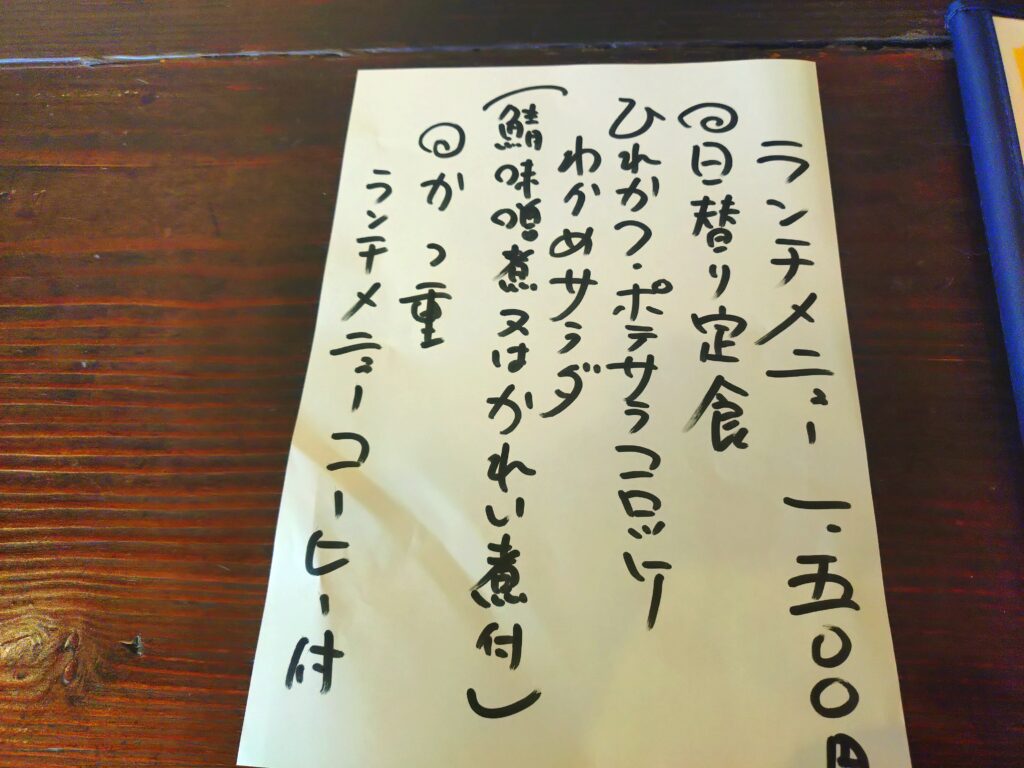 ランチメニュー 一.五〇〇円
◎日替り定食
ひれかつ・ポテサラコロッケー
わかめサラダ
(鯖味噌煮又はかれい煮付)
◎かつ重
ランチメニューコーヒー付